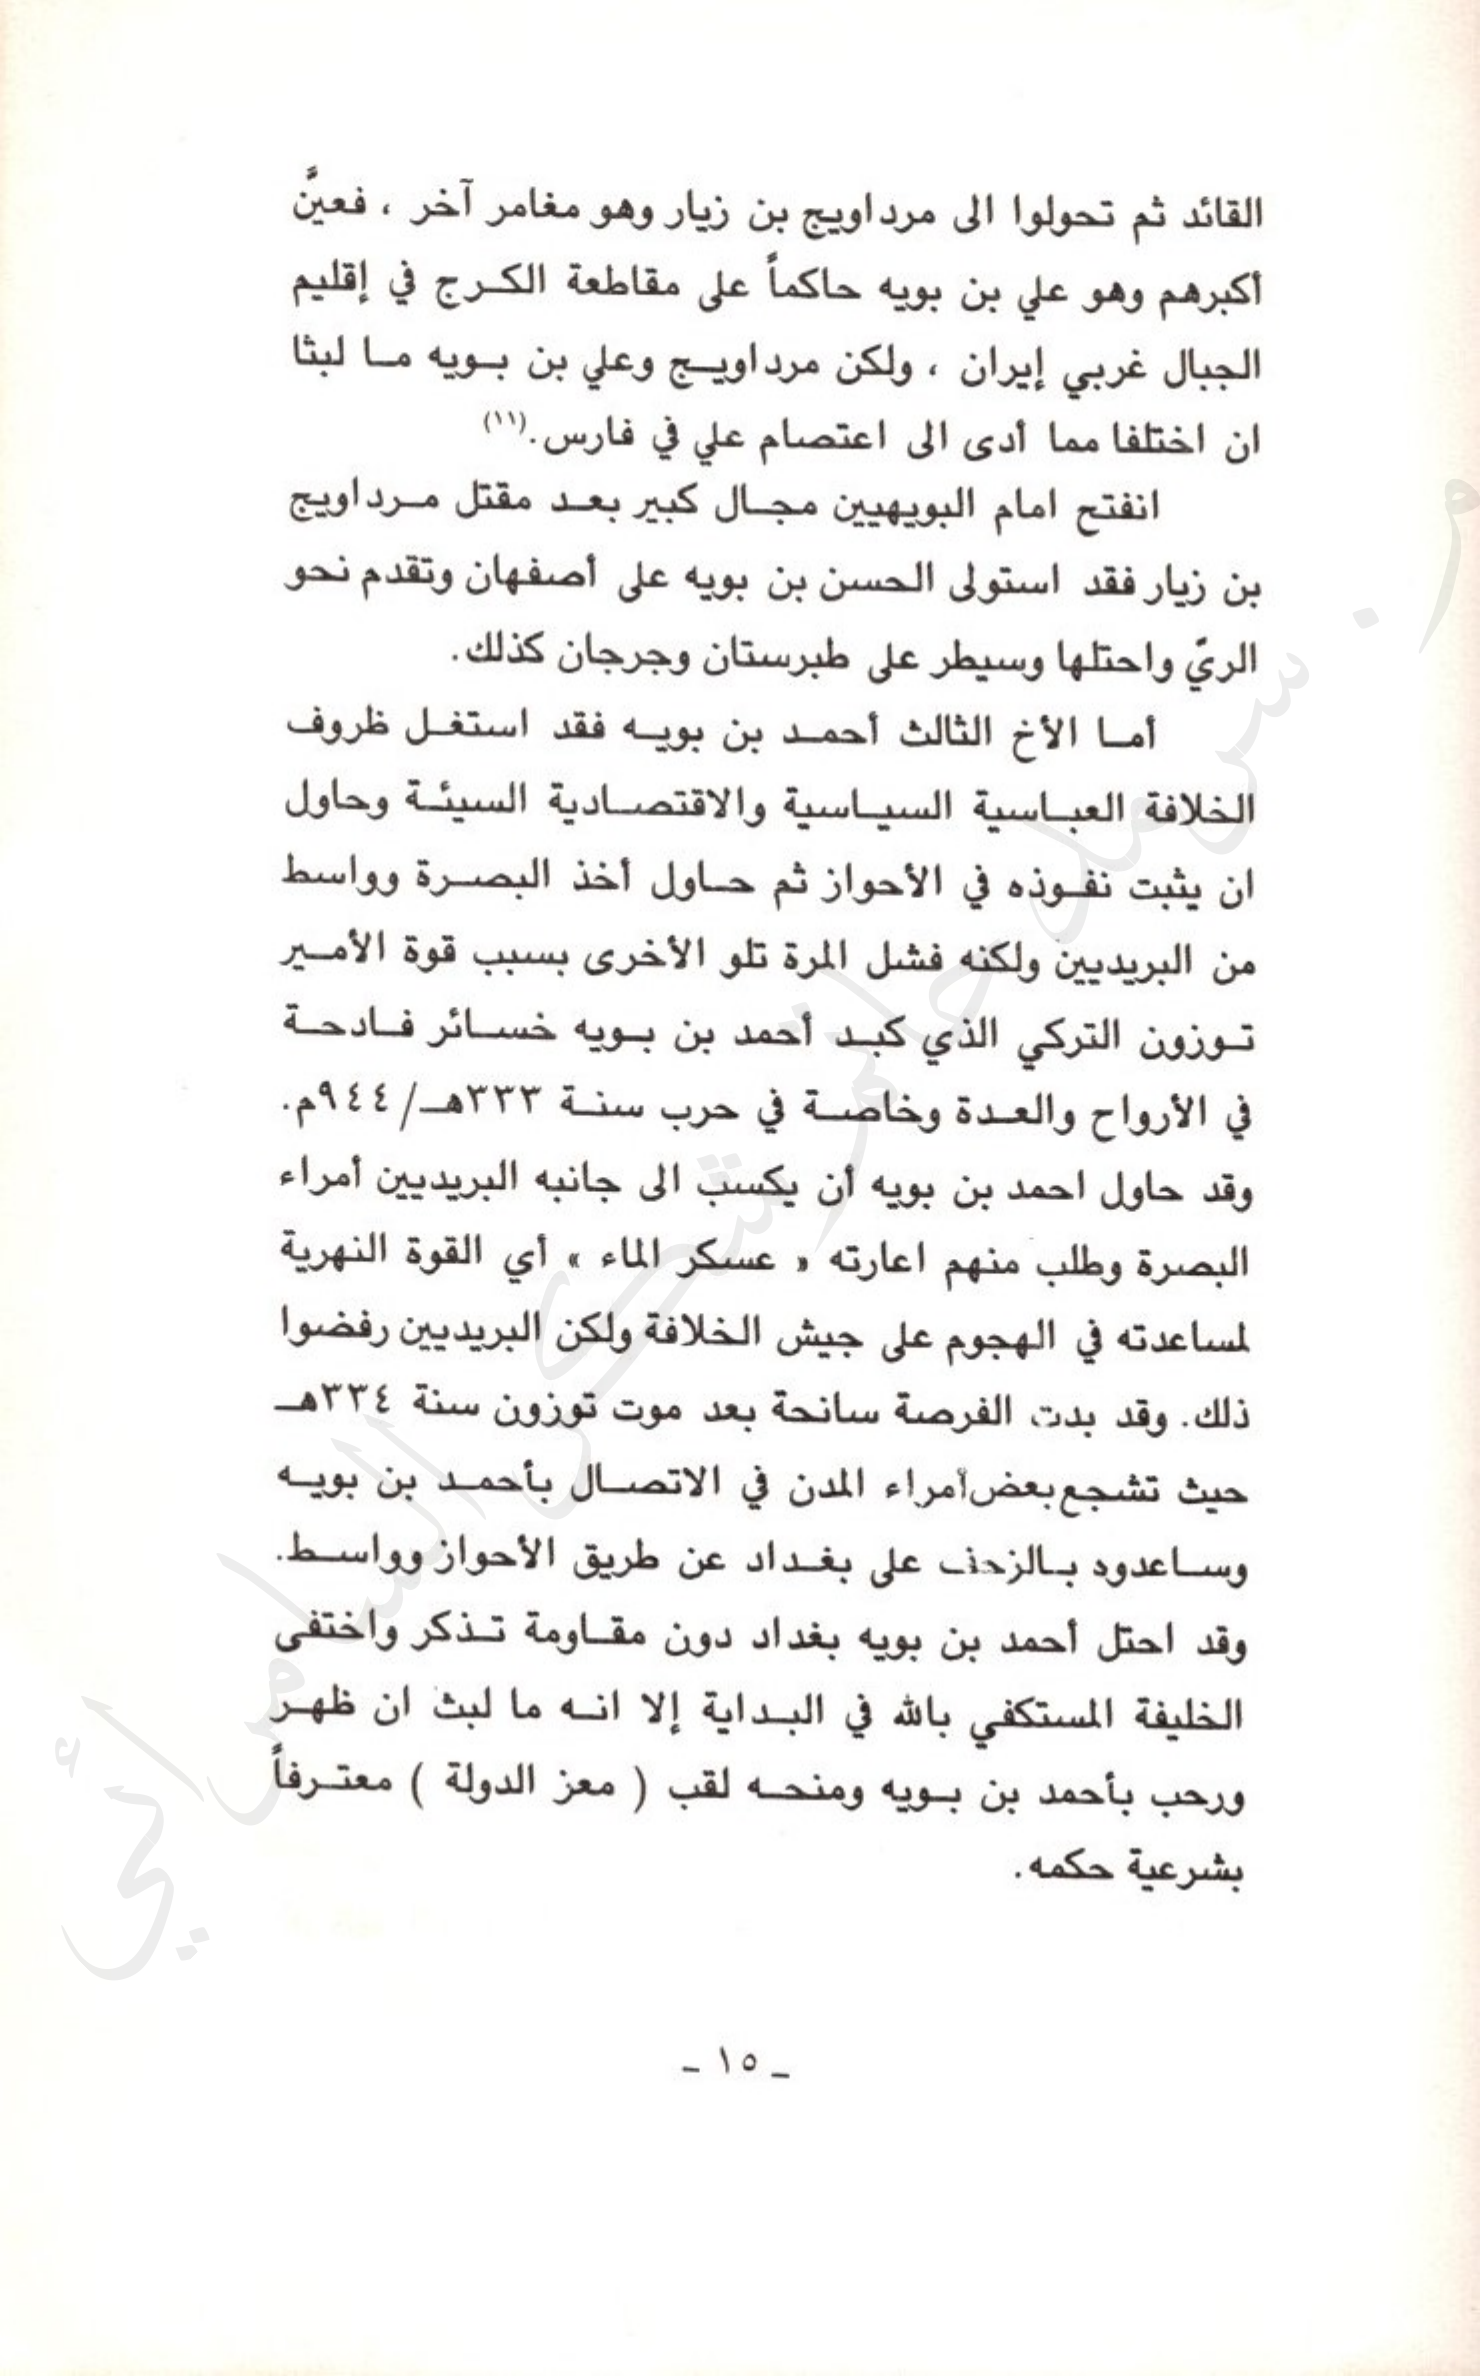 القائد ثم تحولوا الى مرداويج بن زيار وهو مغامر آخر ، فعينَّ
أكبرهم وهو علي بن بويه حاكماً على مقاطعة الكرج في إقليم
الجبال غربي إيران ، ولكن مرداويج وعلي بن بويه ما لبثا
ان اختلفا مما أدى الى اعتصام علي في فارس.(١١)
انفتح امام البويهيين مجال كبير بعد مقتل مرداويج
بن زيار فقد استولى الحسن بن بويه على أصفهان وتقدم نحو
الريّ واحتلها وسيطر على طبرستان وجرجان كذلك.
أما الأخ الثالث أحمد بن بويه فقد استغل ظروف
الخلافة العباسية السياسية والاقتصادية السيئة وحاول
ان يثبت نفوذه في الأحواز ثم حاول أخذ البصرة وواسط
من البريديين ولكنه فشل المرة تلو الأخرى بسبب قوة الأمير
توزون التركي الذي كبد أحمد بن بويه خسائر فادحة
في الأرواح والعدة وخاصة في حرب سنة ٣٣٣هـ/٩٤٤م.
وقد حاول احمد بن بويه أن يكسب الى جانبه البريديين أمراء
البصرة وطلب منهم اعارته « عسكر الماء » أي القوة النهرية
لمساعدته في الهجوم على جيش الخلافة ولكن البريديين رفضوا
ذلك. وقد بدت الفرصة سانحة بعد موت توزون سنة ٣٣٤هـ
حيث تشجع بعض أمراء المدن في الاتصال بأحمد بن بويه
وساعدوه بالزحف على بغداد عن طريق الأحواز وواسط.
وقد احتل أحمد بن بويه بغداد دون مقاومة تذكر واختفى
الخليفة المستكفي بالله في البداية إلا انه ما لبث ان ظهر
ورحب بأحمد بن بويه ومنحه لقب ( معز الدولة ) معترفاً
بشرعية حكمه.
ـ ١٥ ـ